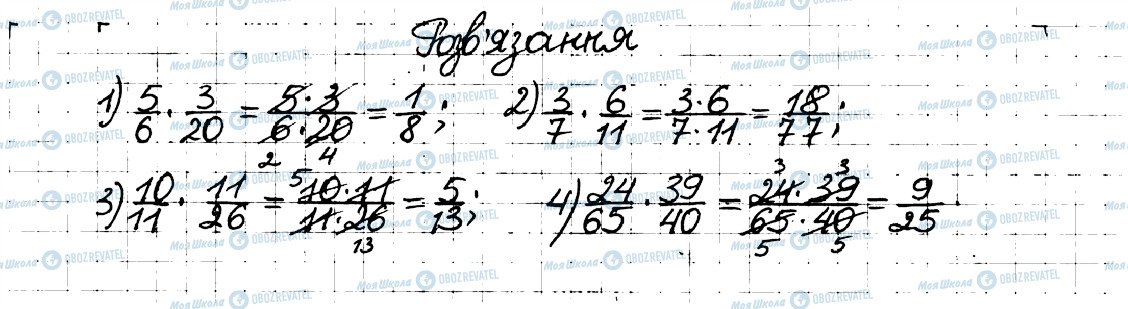 Розв'язання
1) 5/6 · 3/20 = 5·3/6·20 = 1/8; 2) 3/7 · 6/11 = 3·6/7·11 = 18/77;
2 4
3) 10/11 · 11/26 = 5 10·11/11·26 13 = 5/13; 4) 24/65 · 39/40 = 3 24·39 3/65·40 = 9/25.
5 5
МОЯ ШКОЛА OBOZREVATEL